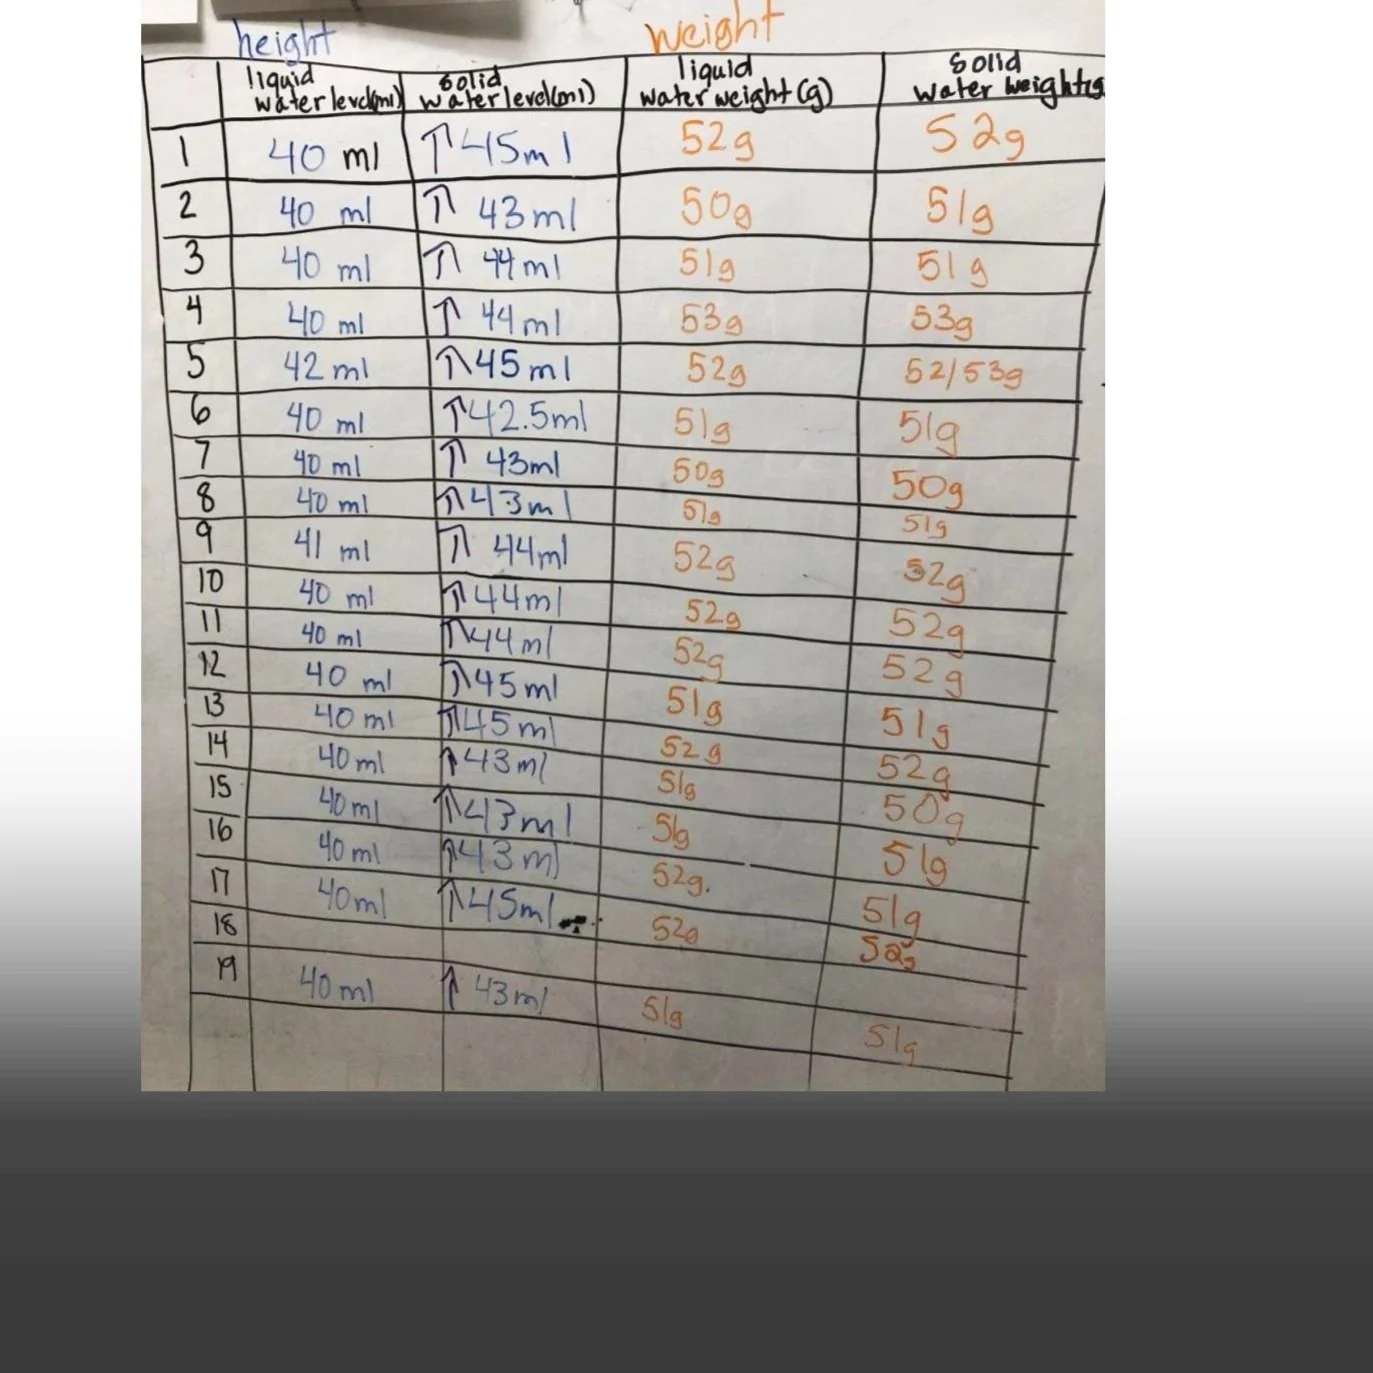 height weight
liquid water level(ml) solid water level(ml) liquid water weight (g) solid water weight(g
1 40 ml ↑45ml 52g 52g
2 40 ml ↑ 43ml 50g 51g
3 40 ml ↑ 44ml 51g 51g
4 40 ml ↑ 44ml 53g 53g
5 42 ml ↑45ml 52g 52/53g
6 40 ml ↑42.5ml 51g 51g
7 40 ml ↑ 43ml 50g 50g
8 40 ml ↑43ml 51g 51g
9 41 ml ↑ 44ml 52g 52g
10 40 ml ↑44ml 52g 52g
11 40 ml ↑44ml 52g 52g
12 40 ml ↑45ml 51g 51g
13 40 ml ↑45ml 52g 52g
14 40 ml ↑43ml 51g 50g
15 40 ml ↑43ml 51g 51g
16 40 ml ↑43ml 52g. 51g
17 40ml ↑45ml 52g 52g
18
19 40 ml ↑ 43ml 51g 51g